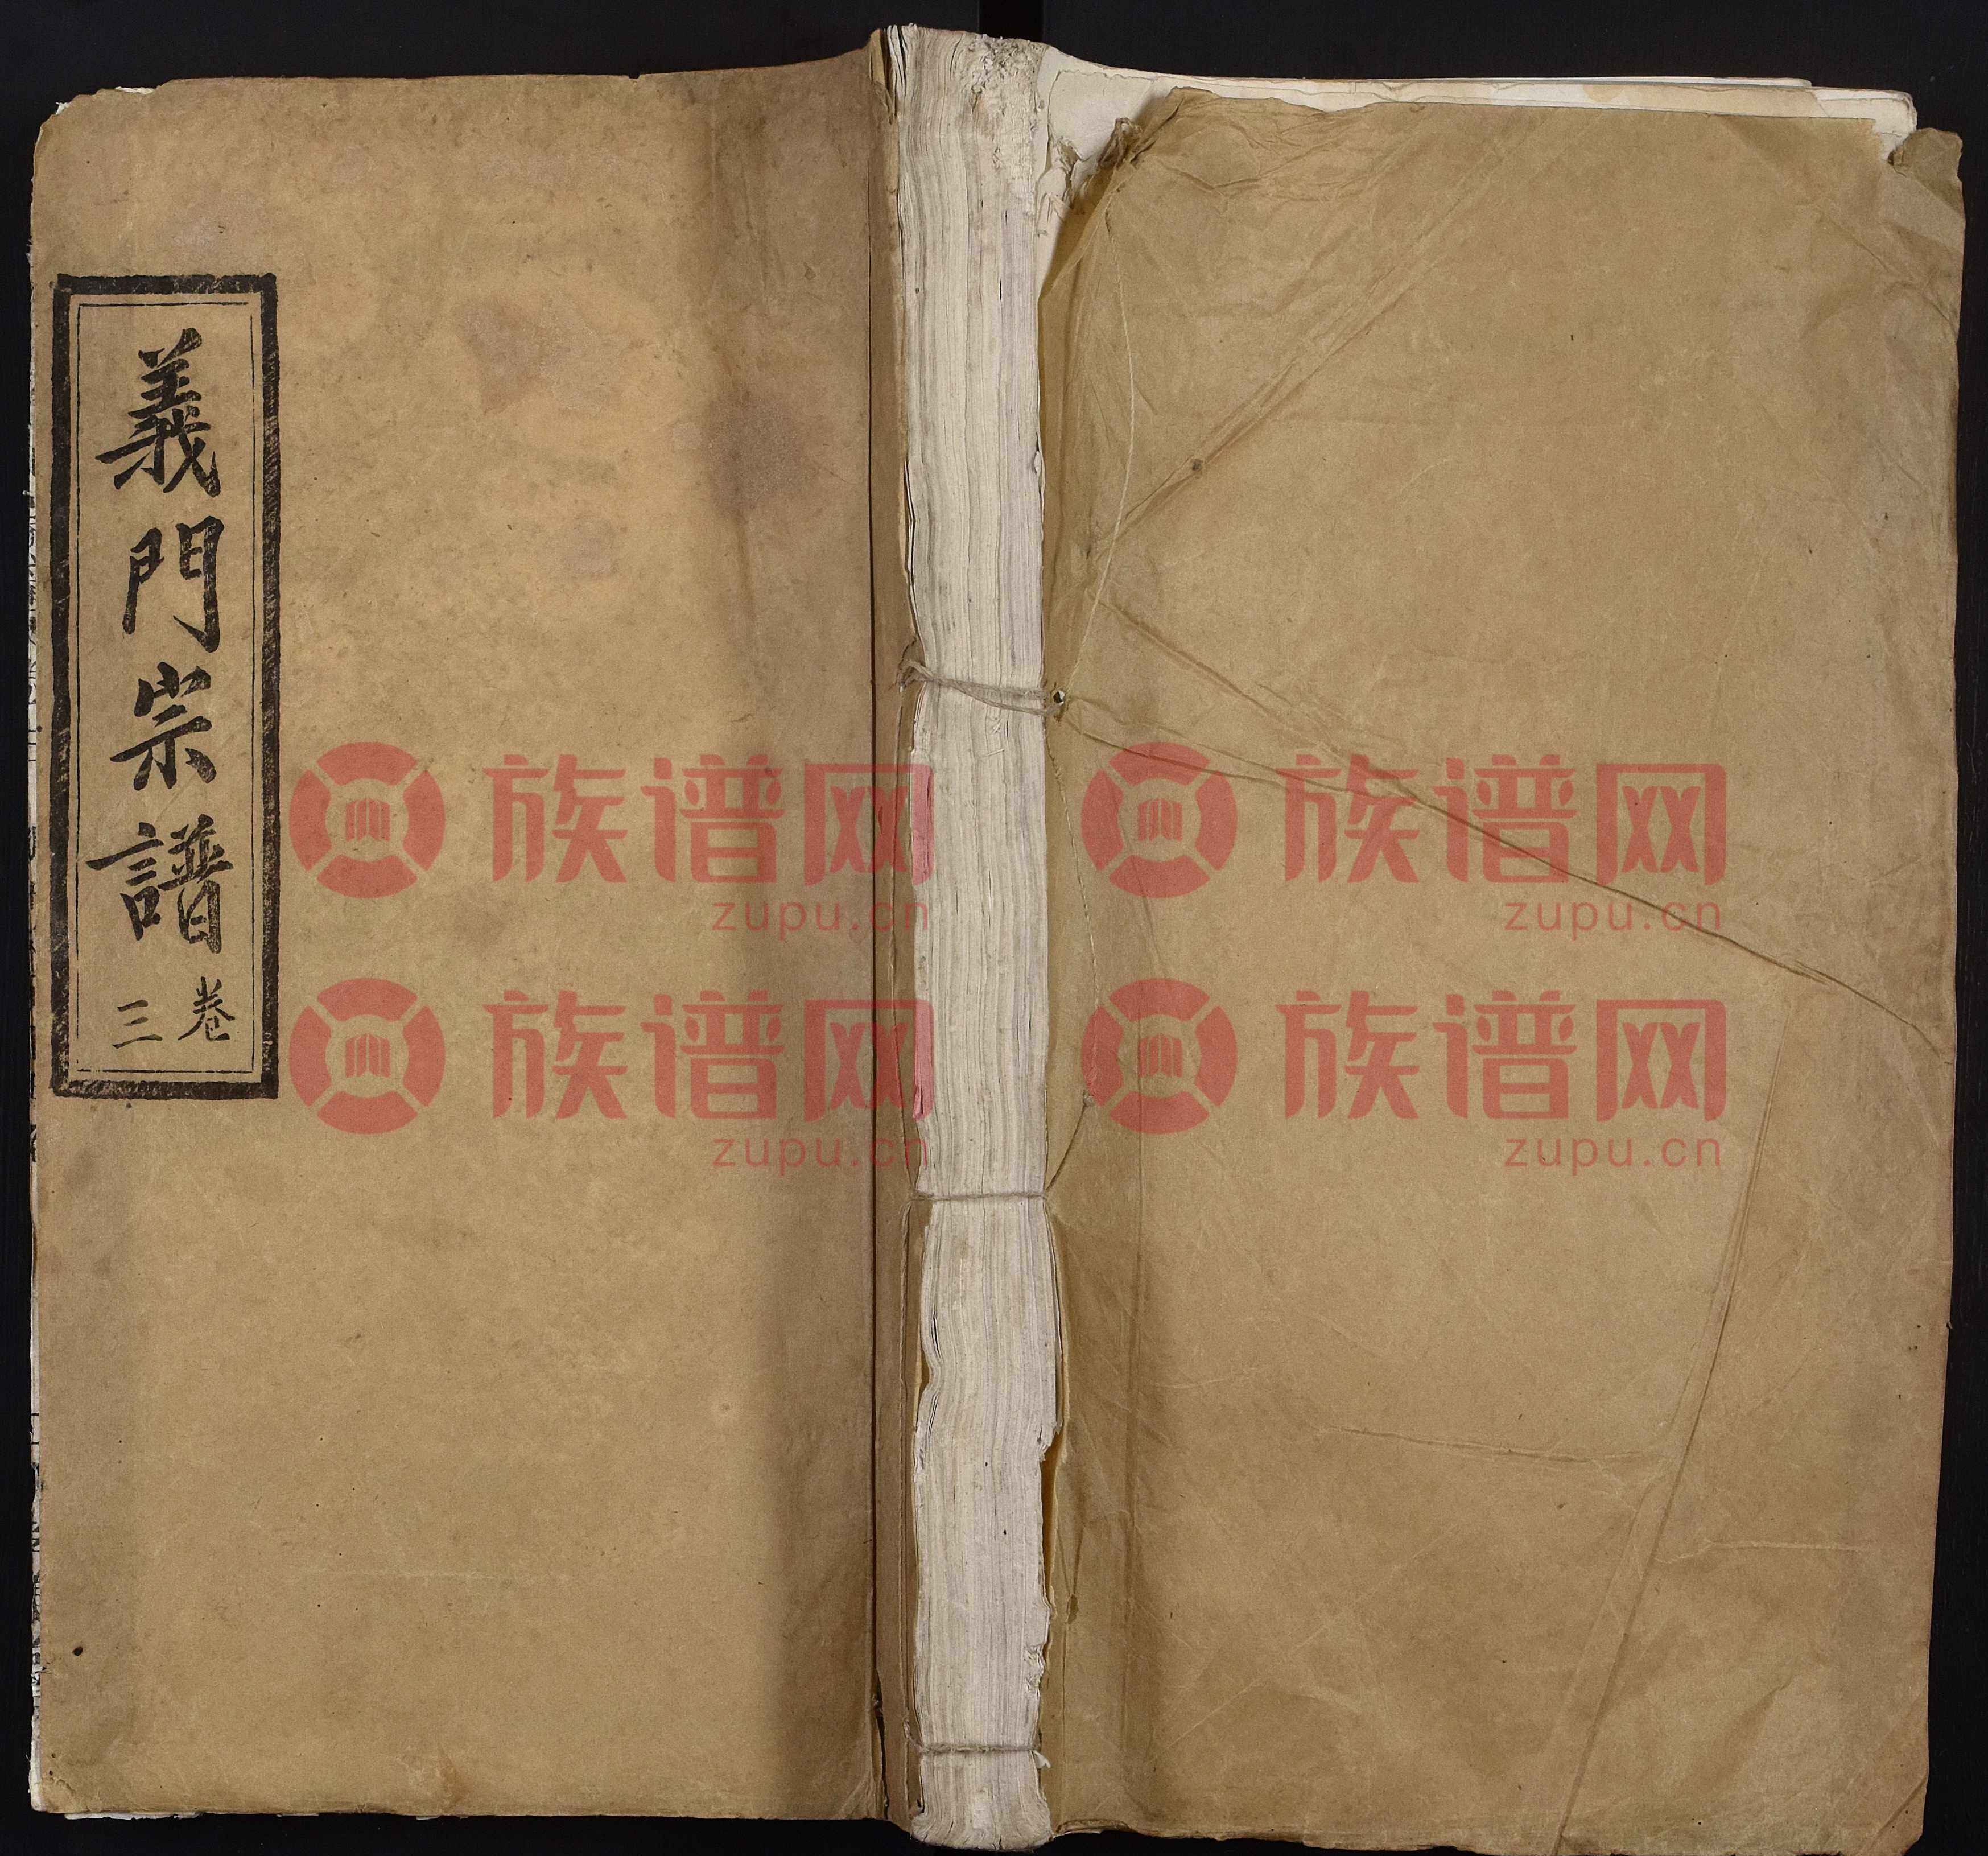 義門宗譜
卷
三
族谱网 族谱网
zupu.cn zupu.cn
族谱网 族谱网
zupu.cn zupu.cn